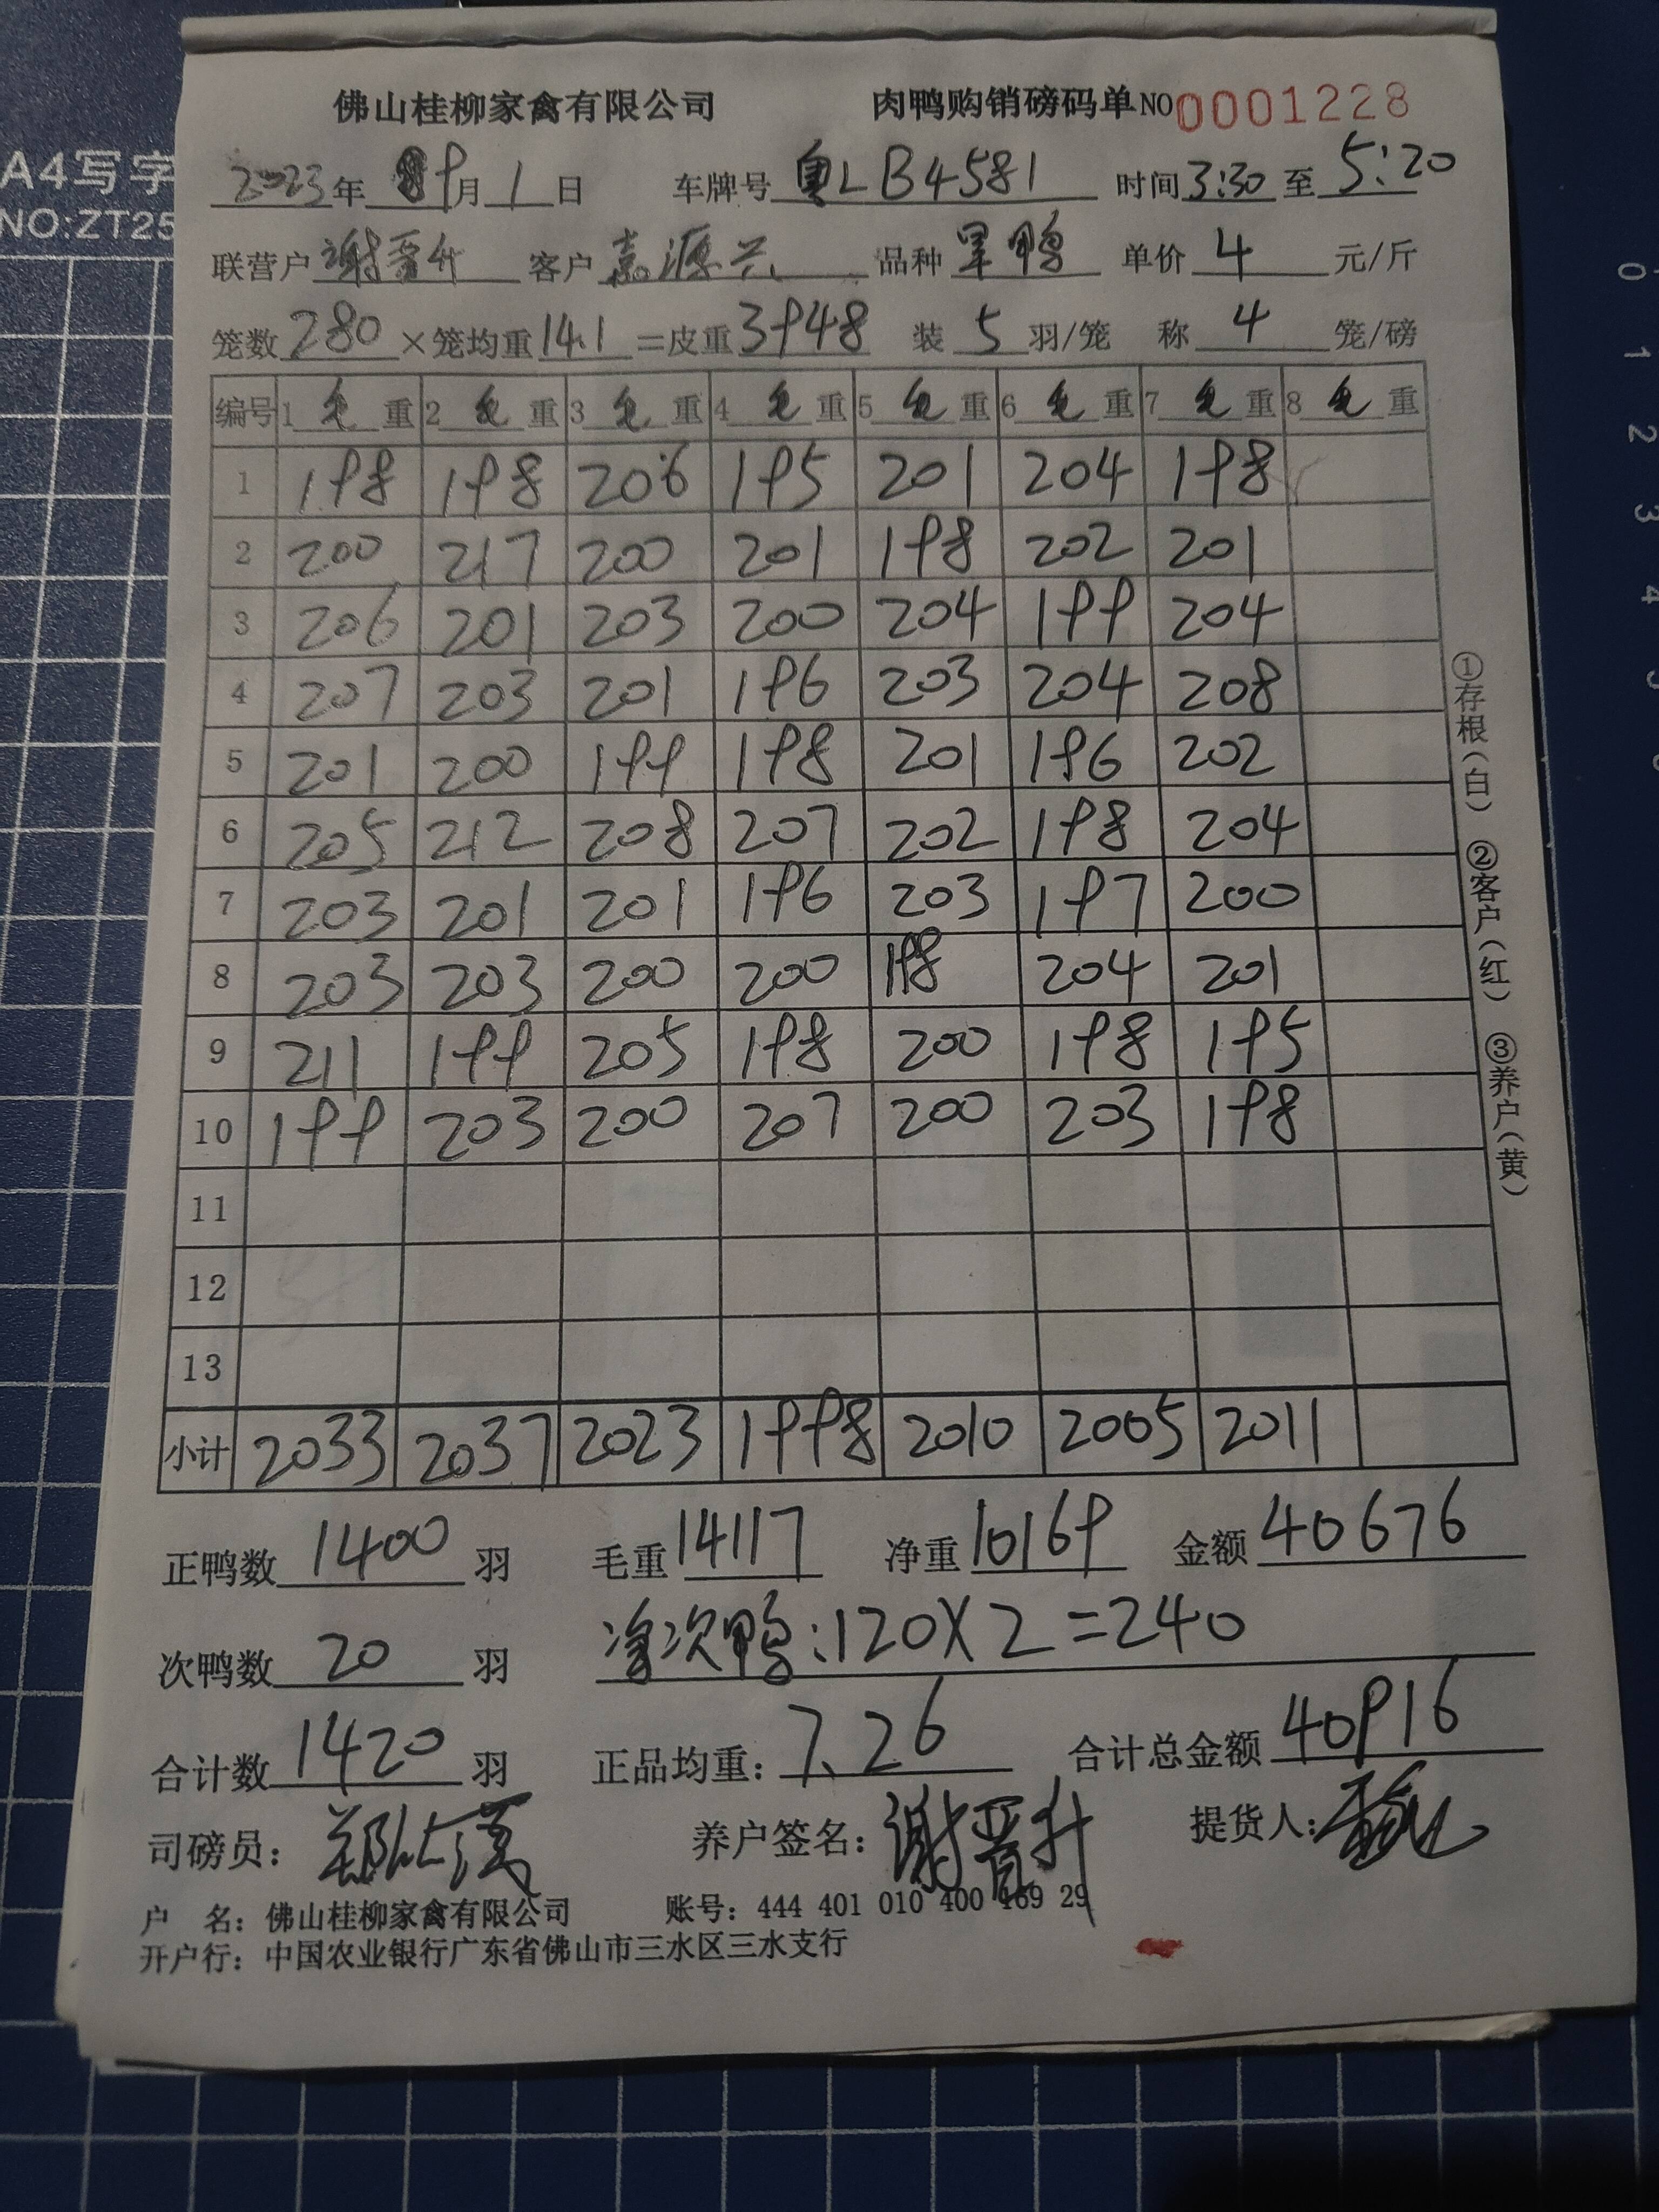 佛山桂柳家禽有限公司 肉鸭购销磅码单NO 0001228
A4写字
NO:ZT25
2023年 9月 1日 车牌号 粤LB4581 时间 3:30 至 5:20
联营户 谢晋升 客户 嘉源兴 品种 单价 4 元/斤
笼数 280 ×笼均重 14.1 =皮重 3948 装 5 羽/笼 称 4 笼/磅
编号 1 毛 重 2 毛 重 3 毛 重 4 毛 重 5 毛 重 6 毛 重 7 毛 重 8 毛 重
1 198 198 206 195 201 204 198
2 200 217 200 201 198 202 201
3 206 201 203 200 204 199 204
4 207 203 201 196 203 204 208
5 201 200 199 198 201 196 202
6 205 212 208 207 202 198 204
7 203 201 201 196 203 197 200
8 203 203 200 200 198 204 201
9 211 199 205 198 200 198 195
10 199 203 200 207 200 203 198
11
12
13
小计 2033 2037 2023 1998 2010 2005 2011
正鸭数 1400 羽 毛重 14117 净重 10169 金额 40676
次鸭数 20 羽 次鸭:120X2=240
合计数 1420 羽 正品均重: 7.26 合计总金额 40916
司磅员: 养户签名: 谢晋升 提货人:
户 名: 佛山桂柳家禽有限公司 账号: 444 401 010 400 169 29
开户行: 中国农业银行广东省佛山市三水区三水支行
①存根(白) ②客户(红) ③养户(黄)
0
1
2
3
4
5
6